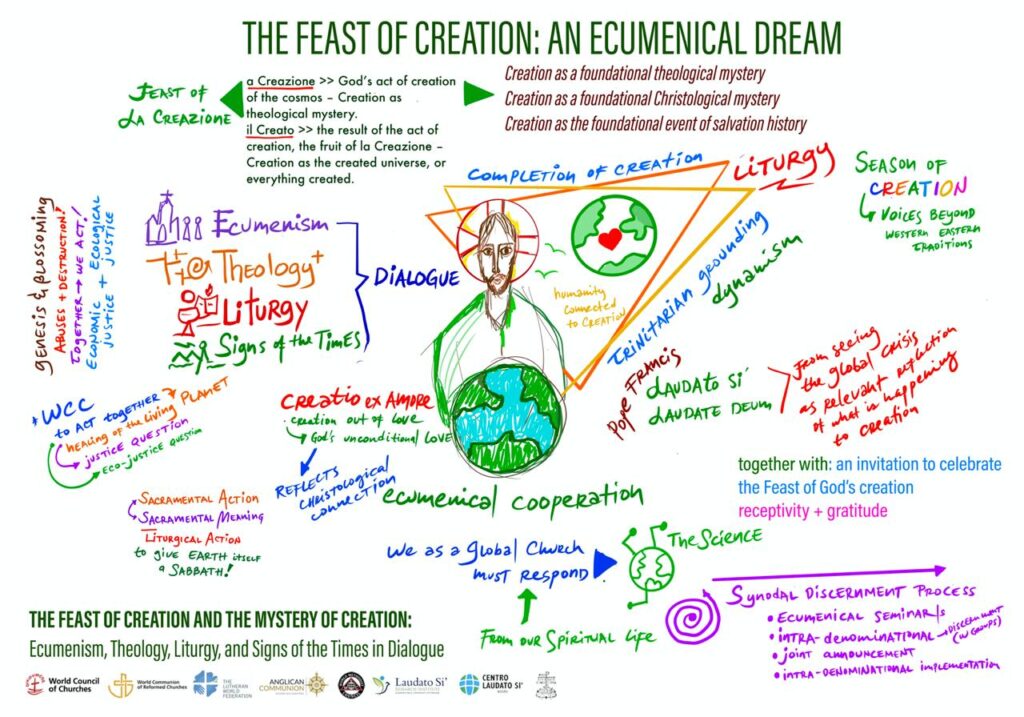 THE FEAST OF CREATION: AN ECUMENICAL DREAM
FEAST OF
LA CREAZIONE
a Creazione >> God's act of creation
of the cosmos – Creation as
theological mystery.
il Creato >> the result of the act of
creation, the fruit of la Creazione –
Creation as the created universe, or
everything created.
Creation as a foundational theological mystery
Creation as a foundational Christological mystery
Creation as the foundational event of salvation history
COMPLETION OF CREATION
LITURGY
TRINITARIAN grounding
dynamism
humanity
connected
to CREATION
SEASON OF
CREATION
VOICES BEYOND
WESTERN EASTERN
TRADITIONS
GENESIS & BLOSSOMING
ABUSES + DESTRUCTION!
TOGETHER → WE ACT!
ECONOMIC + ECOLOGICAL
JUSTICE + JUSTICE
Ecumenism
Theology+
LiTURGY
Signs of the TimES
DIALOGUE
Pope FRANCIS
LAUDATO SI'
LAUDATE DEUM
From seeing
the global CRISIS
as relevant reflection
of what is happening
to CREATION
* WCC
to ACT TOGETHER
healing of the living PLANET
JUSTICE QUESTION
ECO-JUSTICE QUESTION
CREATIO ex AMORE
CREATION OUT OF LOVE
God's unconditional LOVE
REFLECTS
CHRISTOLOGICAL
CONNECTION
ecumenical cooperation
together with: an invitation to celebrate
the Feast of God's creation
receptivity + gratitude
SACRAMENTAL ACTION
SACRAMENTAL MEANING
LITURGICAL ACTION
to give EARTH itself
a SABBATH!
We as a Global Church
must RESPOND!
The SCIENCE
From our Spiritual Life
SYNODAL DISCERNMENT PROCESS
• ECUMENICAL SEMINARS
• INTRA-denominational → DISCERNMENT
(W GROUPS)
• JOINT ANNOUNCEMENT
• INTRA-DENOMINATIONAL IMPLEMENTATION
THE FEAST OF CREATION AND THE MYSTERY OF CREATION:
Ecumenism, Theology, Liturgy, and Signs of the Times in Dialogue
World Council
of Churches
World Communion
of Reformed Churches
THE
LUTHERAN
WORLD
FEDERATION
ANGLICAN
COMMUNION
Laudato Si'
RESEARCH INSTITUTE
CENTRO
LAUDATO SI'